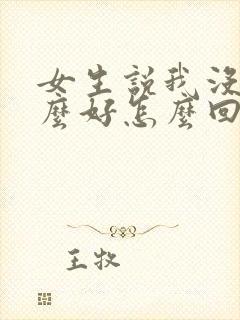 女生說我沒
麼好怎麼回
王牧